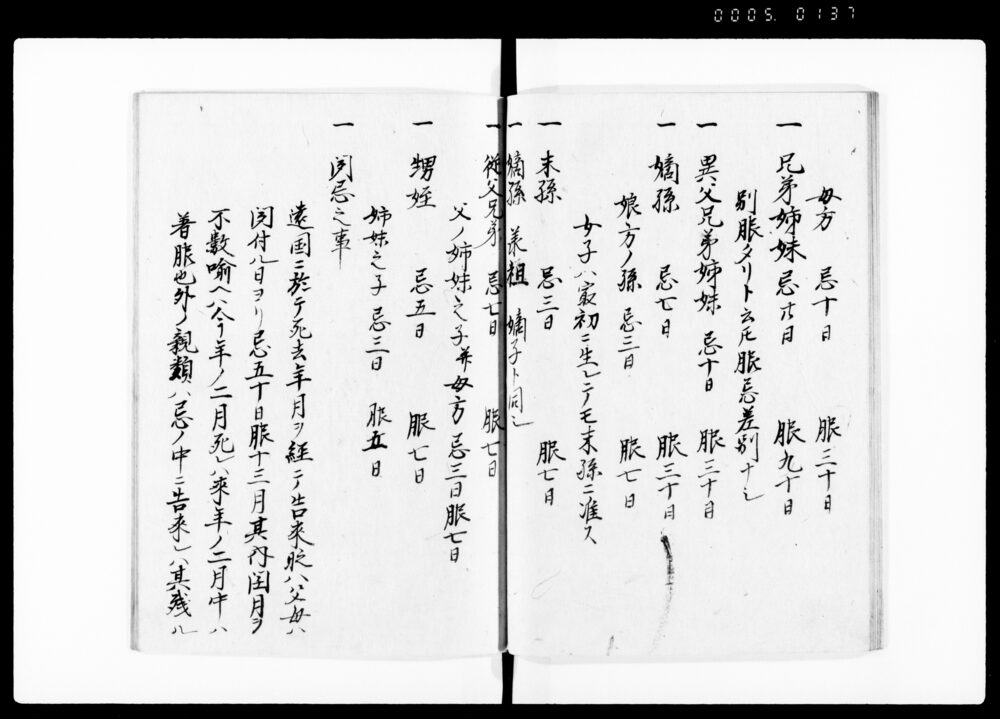 0005.0137
母方 忌十日 服三十日
一 兄弟姉妹 忌廿日 服九十日
別服タリト云ドモ服忌差別ナシ
一 異父兄弟姉妹 忌十日 服三十日
一 嫡孫 忌七日 服三十日
娘方ノ孫 忌三日 服七日
女子ハ最初ニ生レテモ末孫ニ准ス
一 末孫 忌三日 服七日
一 嫡孫 義祖 嫡子ト同シ
一 従父兄弟 忌七日 服七日
父ノ姉妹之子并母方 忌三日服七日
一 甥姪 忌五日 服七日
姉妹之子 忌三日 服五日
一 聞忌之事
遠国ニ於テ死去年月ヲ経ニテ告来ハ父母ハ
聞付ル日ヨリ忌五十日服十三月其内閏月ヲ
不数喩ヘハ今年ノ二月死レハ来年ノ二月中ハ
着服也外ノ親類ハ忌ノ中ニ告来レハ其残ル